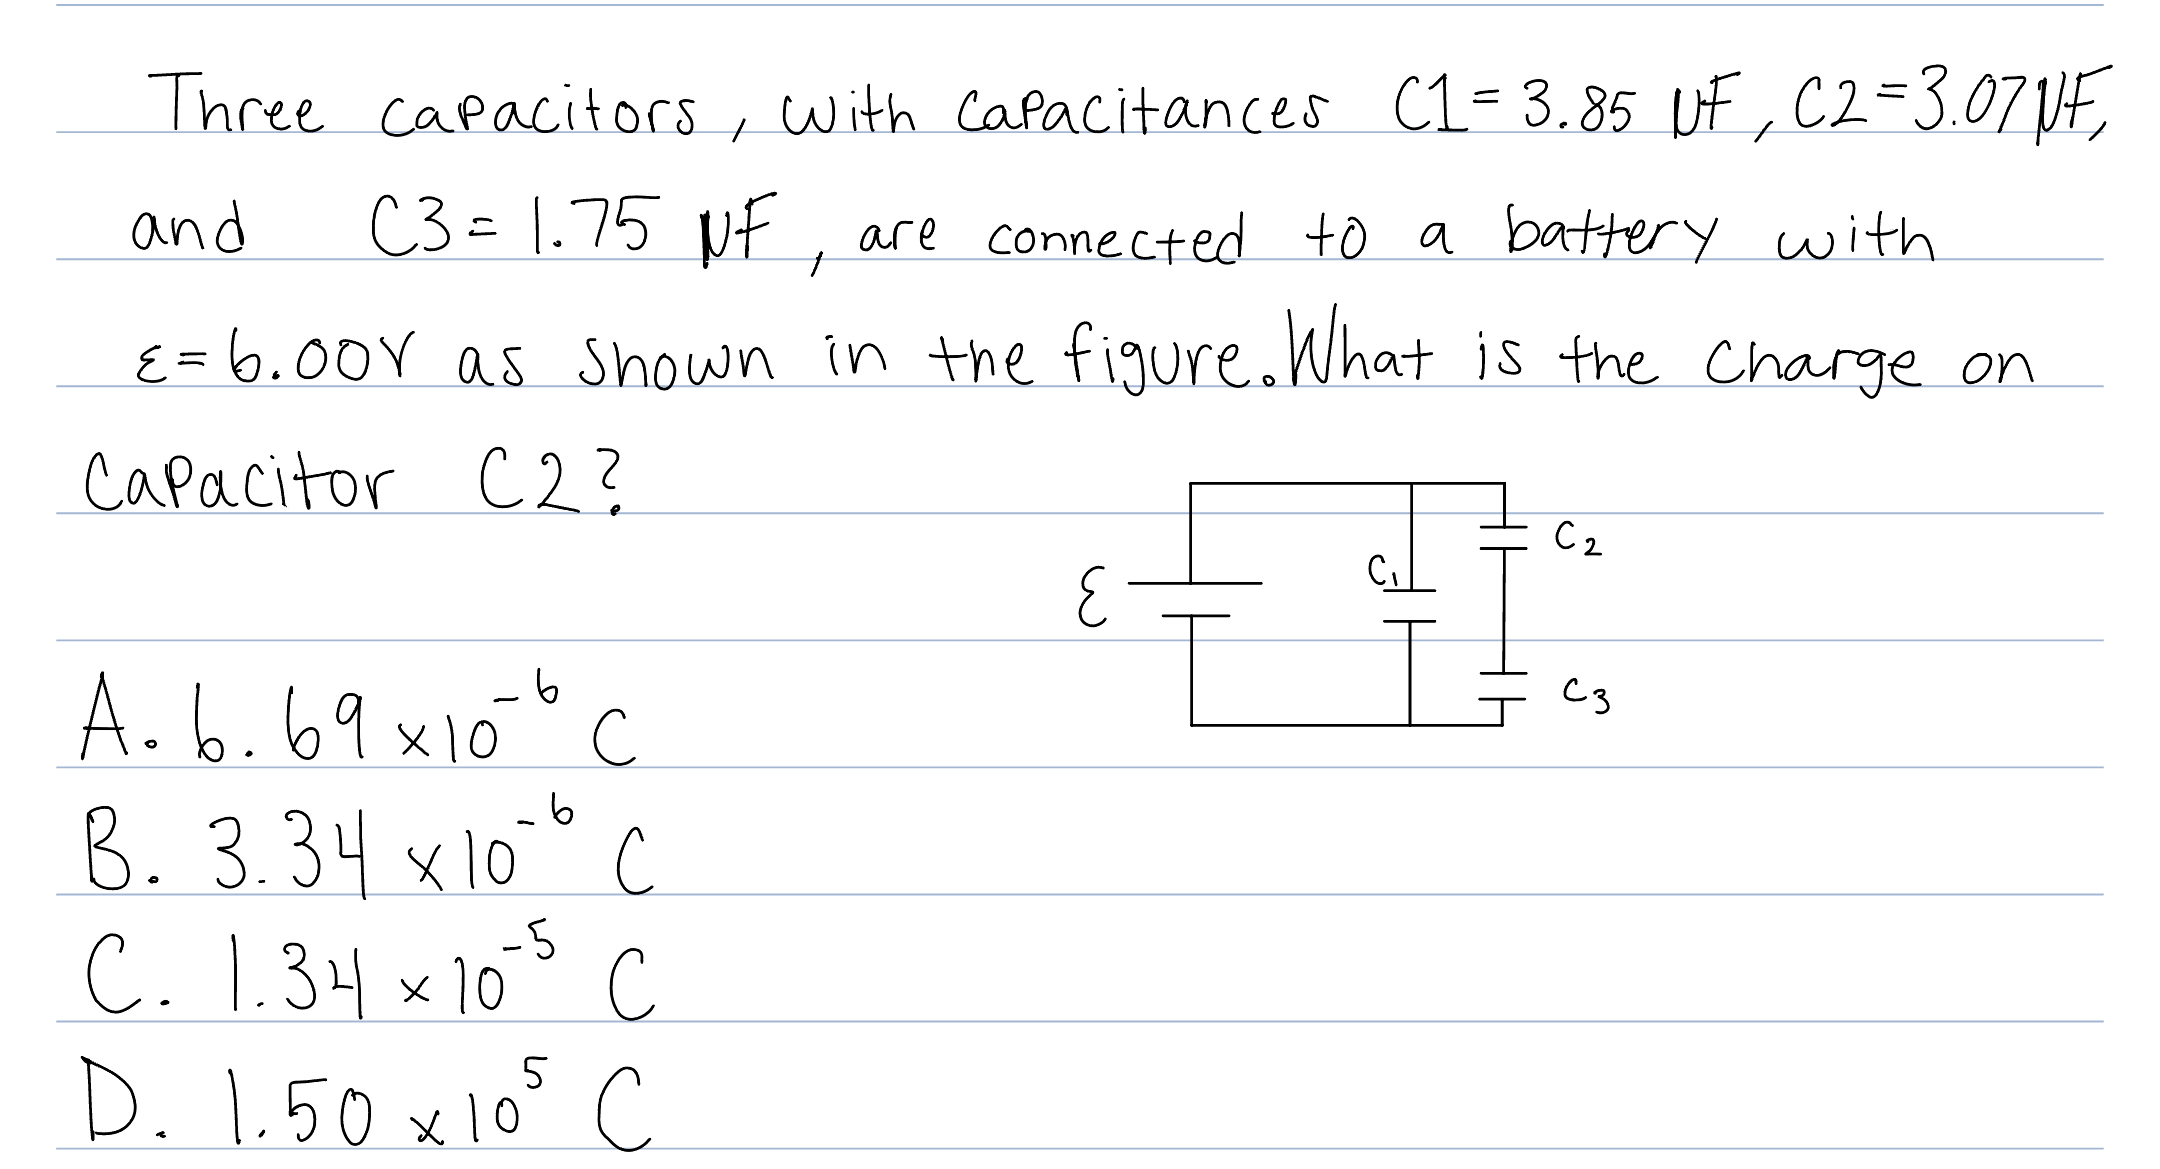 Three capacitors, with capacitances C1 = 3.85 μF, C2 = 3.07 μF,
and C3 = 1.75 μF, are connected to a battery with
ε = 6.00V as shown in the figure. What is the charge on
capacitor C2?
C2
C1
ε
C3
A. 6.69 x10⁻⁶ C
B. 3.34 x10⁻⁶ C
C. 1.34 x10⁻⁵ C
D. 1.50 x10⁵ C